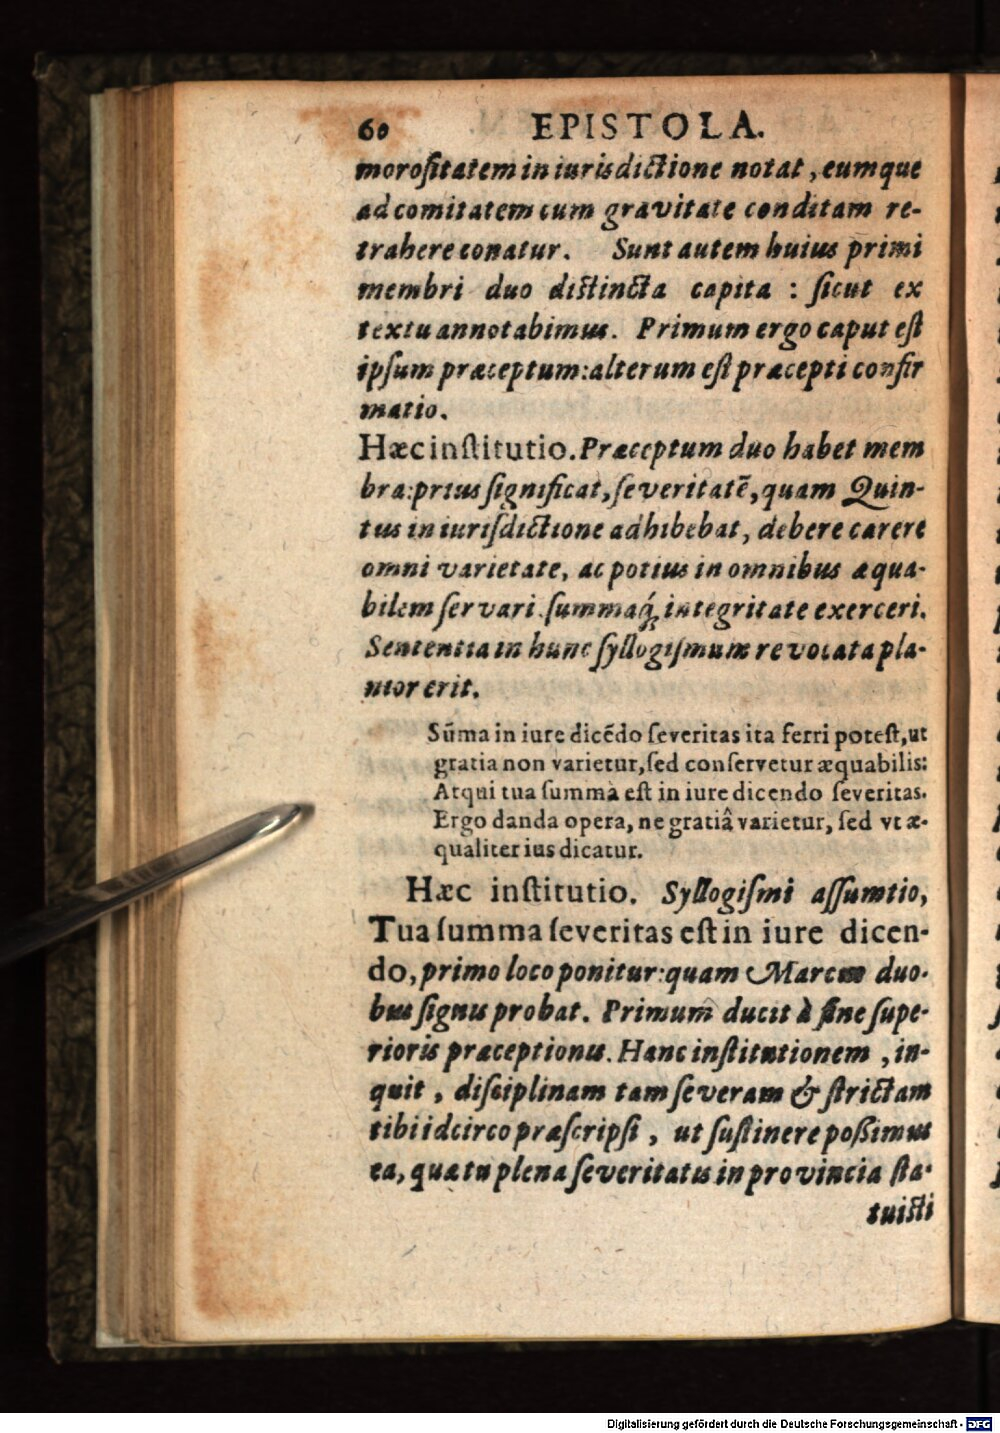 60 EPISTOLA.
moroſitatem in iurisdictione notat, eumque
ad comitatem cum gravitate conditam re-
trahere conatur. Sunt autem huius primi
membri duo distincta capita : ſicut ex
textu annotabimus. Primum ergo caput eſt
ipſum præceptum: alterum eſt præcepti confir
matio.
Hæc inſtitutio. Præceptum duo habet mem
bra: prius ſignificat, ſeveritatē, quam Quin-
tus in iuriſdictione adhibebat, debere carere
omni varietate, ac potius in omnibus æqua-
bilem ſervari. ſummaq́; integritate exerceri.
Sententia in hunc ſyllogiſmum revocata pla-
nior erit.
Sūma in iure dicēdo ſeveritas ita ferri poteſt, ut
gratia non varietur, ſed conſervetur æquabilis:
Atqui tua ſumma eſt in iure dicendo ſeveritas.
Ergo danda opera, ne gratiâ varietur, ſed vt æ-
qualiter ius dicatur.
Hæc inſtitutio. Syllogiſmi aſſumtio,
Tua ſumma ſeveritas eſt in iure dicen-
do, primo loco ponitur: quam Marcus duo-
bus ſignis probat. Primum ducit à fine ſupe-
rioris præceptionis. Hanc inſtitutionem, in-
quit, diſciplinam tam ſeveram & ſtrictam
tibi idcirco præſcripſi, ut ſuſtinere poßimus
ea, quæ tu plena ſeveritatis in provincia ſta-
tuiſti
Digitalisierung gefördert durch die Deutsche Forschungsgemeinschaft - DFG